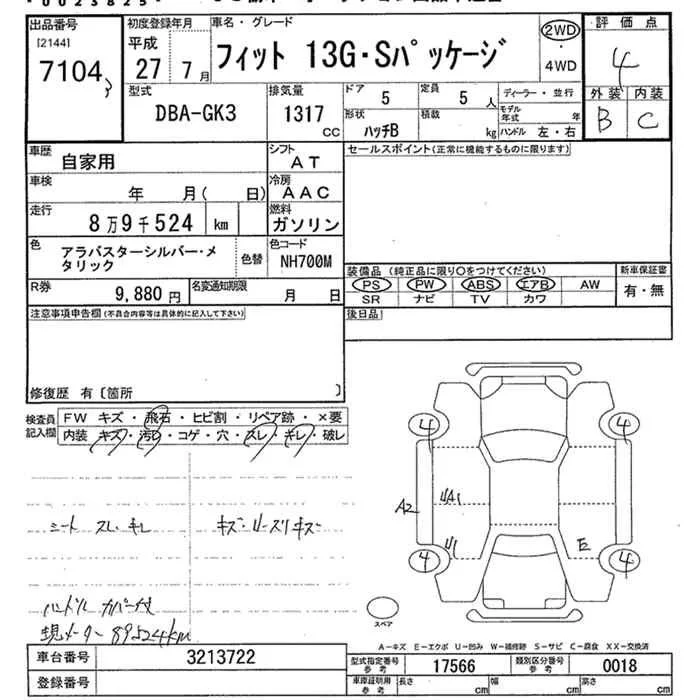 出品番号 初度登録年月 車名・グレード 評価点
[2144] 平成 フィット 13G・Sパッケージ 2WD 4
7104 27年 7月 ・4WD
型式 排気量 ドア 定員 ディーラー・並行 外装 内装
DBA-GK3 1317 5 5人 モデル年式 年 B C
CC 形状 積載 ハンドル 左・右
ハッチB kg
車歴 自家用 シフト AT セールスポイント(正常に機能するものに限ります)
車検 年 月( 日) 冷房 AAC
走行 8万9千524 km 燃料 ガソリン
色 アラバスターシルバー・メタリック 色替 色コード NH700M
装備品 (純正品に限り○をつけてください) 新車保証書
PS PW ABS エアB AW 有・無
SR ナビ TV カワ
R券 9,880円 名変通知期限 月 日
注意事項申告欄(不具合内容等は具体的に記入して下さい) 後日品
修復歴 有〔箇所 〕
検査員記入欄 FW キズ・飛石・ヒビ割・リペア跡・×要
内装 キズ・汚レ・コゲ・穴・スレ・キレ・破レ
4 4
A2 UA1
U1 E
4 4
シート スレ・キレ
ハンドル カバー付
現メーター 89524km
スペア
A-キズ E-エクボ U-凹み W-補修跡 S-サビ C-腐食 XX-交換済
車台番号 3213722 型式指定番号 参考 17566 類別区分番号 参考 0018
登録番号 車庫証明用 参考 長さ cm 幅 cm 高さ cm